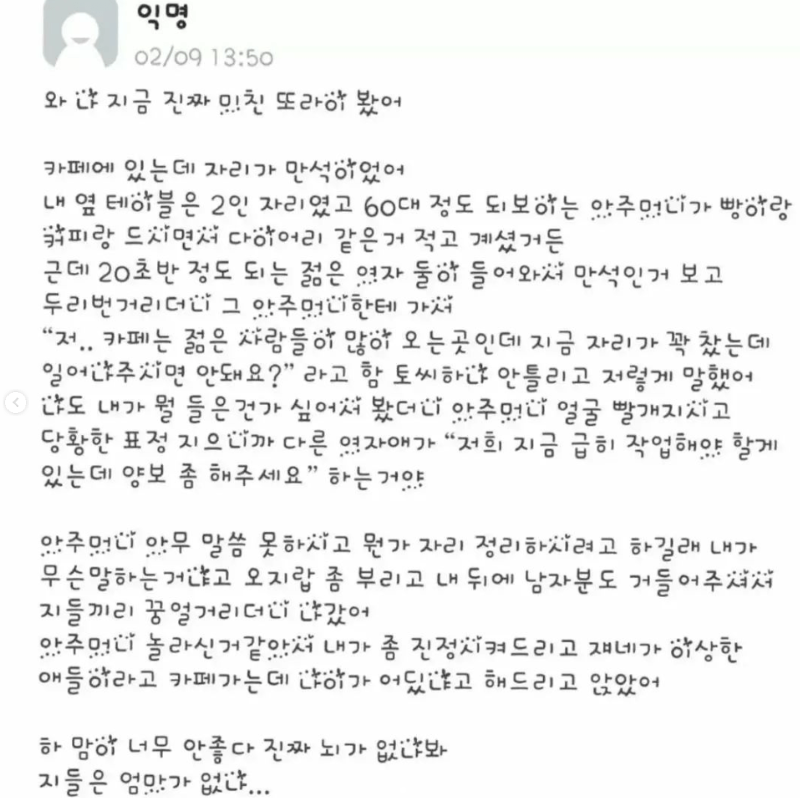 익명
02/09 13:50
와 나 지금 진짜 미친 또라이 봤어
카페에 있는데 자리가 만석이었어
내 옆 테이블은 2인 자리였고 60대 정도 되보이는 아주머니가 빵이랑
커피랑 드시면서 다이어리 같은거 적고 계셨거든
근데 20초반 정도 되는 젊은 여자 둘이 들어와서 만석인거 보고
두리번거리더니 그 아주머니한테 가서
“저.. 카페는 젊은 사람들이 많이 오는곳인데 지금 자리가 꽉 찼는데
일어나주시면 안돼요?” 라고 함 토씨하나 안틀리고 저렇게 말했어
나도 내가 뭘 들은건가 싶어서 봤더니 아주머니 얼굴 빨개지시고
당황한 표정 지으니까 다른 여자애가 “저희 지금 급히 작업해야 할게
있는데 양보 좀 해주세요” 하는거야
아주머니 아무 말씀 못하시고 뭔가 자리 정리하시려고 하길래 내가
무슨말하는거냐고 오지랍 좀 부리고 내 뒤에 남자분도 거들어주셔서
지들끼리 꿍얼거리더니 나갔어
아주머니 놀라신거같아서 내가 좀 진정시켜드리고 쟤네가 이상한
애들이라고 카페가는데 나이가 어딨냐고 해드리고 앉았어
하 맘이 너무 안좋다 진짜 뇌가 없나봐
지들은 엄마가 없나...